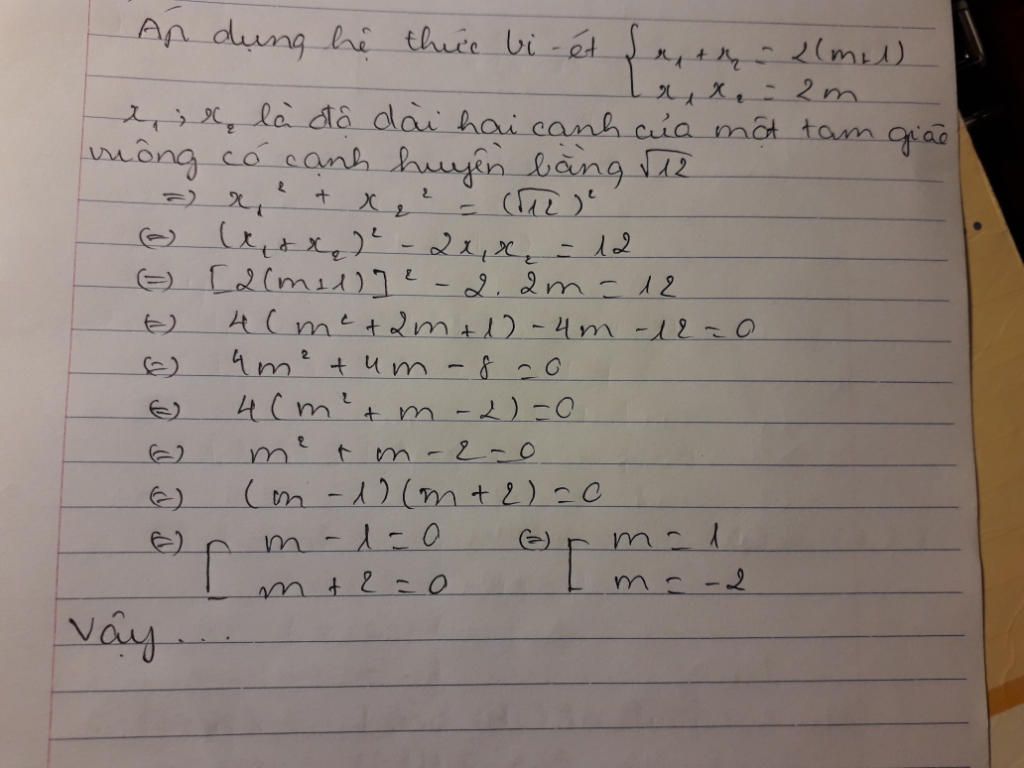 Áp dụng hệ thức Vi-ét { x₁ + x₂ = 2(m+1)
x₁ x₂ = 2m
x₁ ; x₂ là độ dài hai cạnh của một tam giác
vuông có cạnh huyền bằng √12
=> x₁² + x₂² = (√12)²
(=) (x₁ + x₂)² - 2x₁x₂ = 12
(=) [2(m+1)]² - 2. 2m = 12
(=) 4(m² + 2m + 1) - 4m - 12 = 0
(=) 4m² + 4m - 8 = 0
(=) 4(m² + m - 2) = 0
(=) m² + m - 2 = 0
(=) (m - 1)(m + 2) = 0
(=) [ m - 1 = 0 (=) [ m = 1
m + 2 = 0 m = -2
Vậy ....